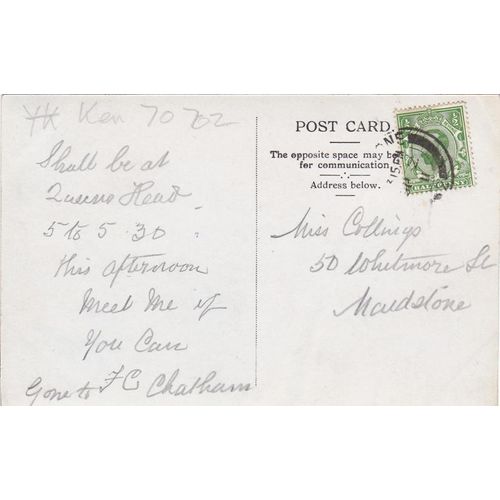 Ken 70702
Shall be at
Queens Head
5 to 5.30
this afternoon
Meet Me if
You Can
Gone to FC Chatham
POST CARD
The opposite space may be
for communication.
Address below.
Miss Collings
50 Whitmore St
Maidstone